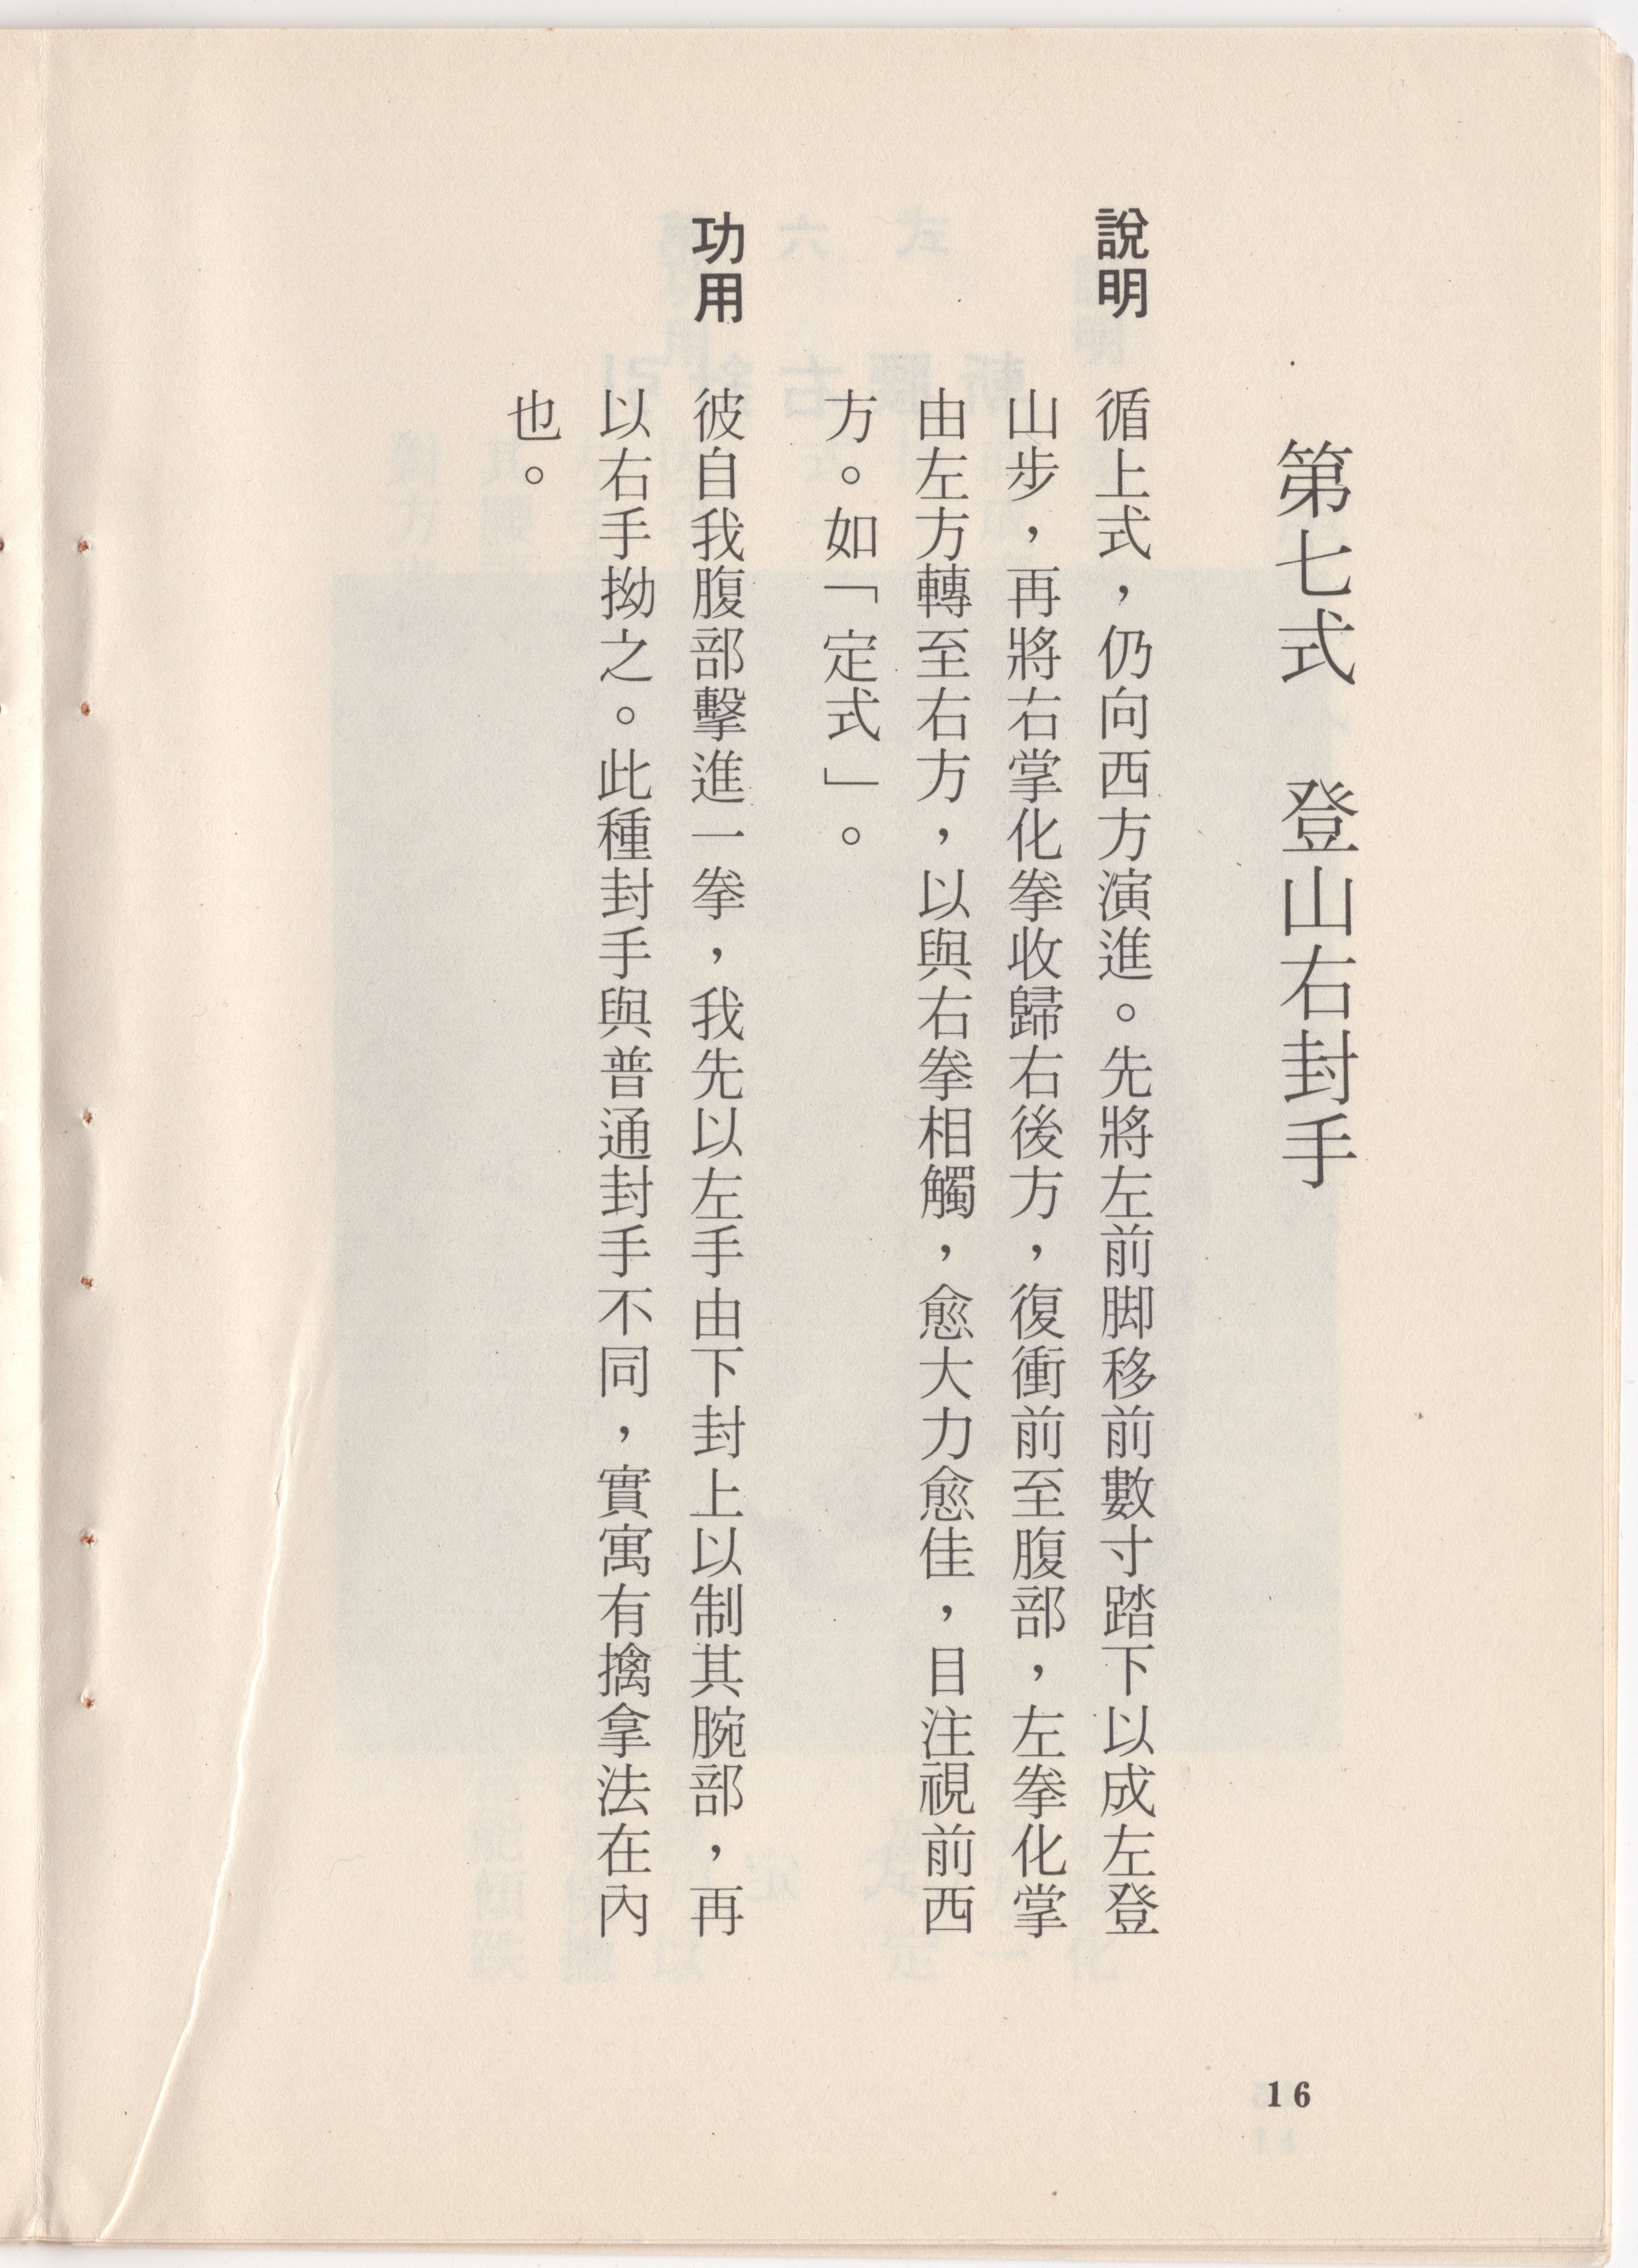 第七式　登山右封手
說明　循上式，仍向西方演進。先將左前脚移前數寸踏下以成左登
山步，再將右掌化拳收歸右後方，復衝前至腹部，左拳化掌
由左方轉至右方，以與右拳相觸，愈大力愈佳，目注視前西
方。如「定式」。
功用　彼自我腹部擊進一拳，我先以左手由下封上以制其腕部，再
以右手拗之。此種封手與普通封手不同，實寓有擒拿法在內
也。
16